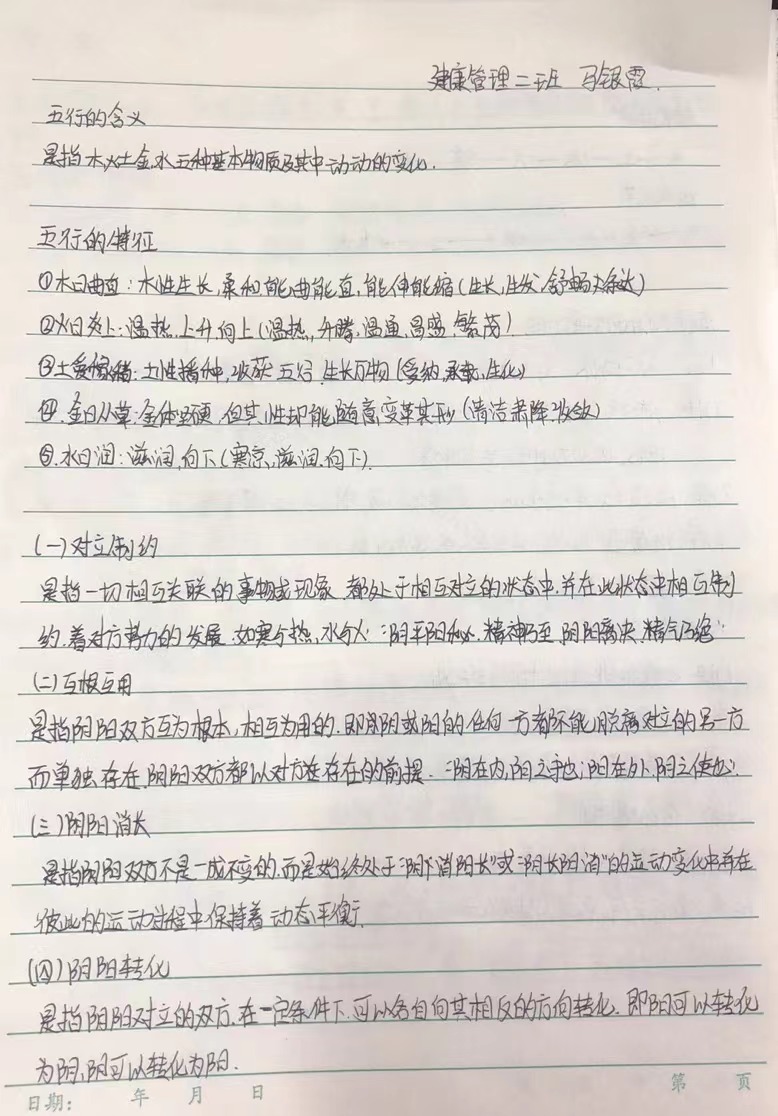 健康管理二班 马银霞.
五行的含义
是指木火土金水五种基本物质及其中动动的变化.
五行的特征
①木曰曲直:木性生长,柔和,能曲能直,能伸能缩(生长,生发,舒畅,条达)
②火曰炎上:温热,上升,向上(温热,升腾,温通,昌盛,繁茂)
③土爰稼穑:土性播种,收获五谷,生长万物(受纳,承载,生化)
④.金曰从革:金体坚硬,但其性却能随意变革其形(清洁肃降收敛)
⑤.水曰润:滋润,向下(寒凉,滋润.向下).
(一)对立制约
是指一切相互关联的事物或现象,都处于相互对立的状态中.并在此状态中相互制
约.着对方势力的发展.如寒与热,水与火 "阴平阳秘.精神乃至,阴阳离决,精气乃绝"
(二)互根互用
是指阴阳双方互为根本,相互为用的.即阴或阳的任何一方都不能脱离对立的另一方
而单独存在.阴阳双方都以对方在存在的前提."阴在内,阳之守也;阳在外.阴之使也".
(三)阴阳消长
是指阴阳双方不是一成不变的.而是始终处于"阴消阳长"或"阴长阳消"的运动变化中并在
彼此的运动过程中保持着动态平衡.
(四)阴阳转化
是指阴阳对立的双方.在一定条件下.可以各自向其相反的方向转化.即阳可以转化
为阴,阴可以转化为阳.
日期: 年 月 日 第 页